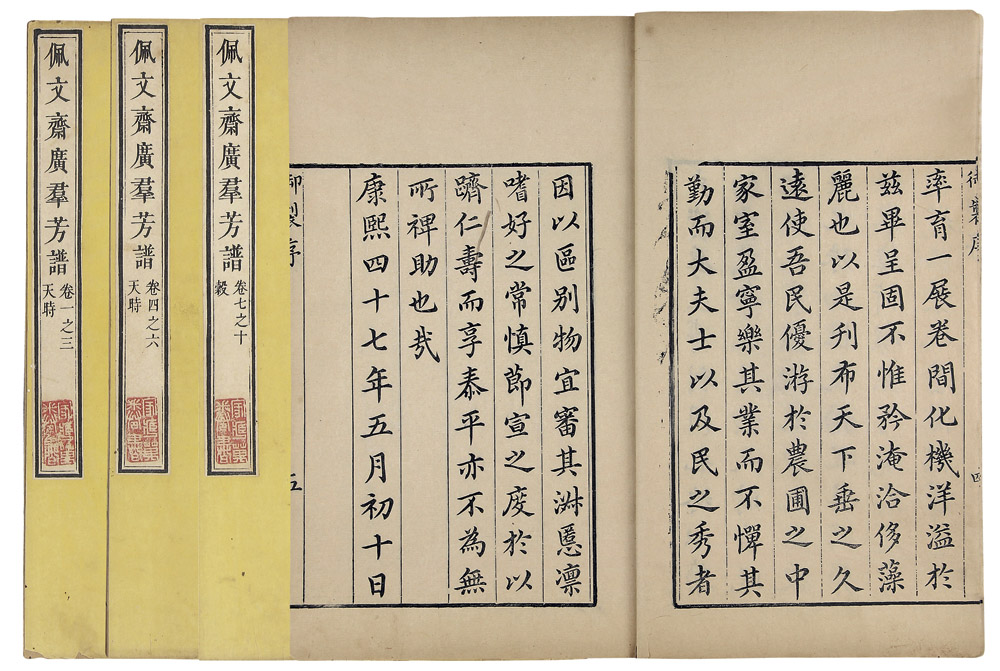 佩文齋廣羣芳譜
卷一之三
天時
佩文齋廣羣芳譜
卷四之六
天時
佩文齋廣羣芳譜
卷七之十
穀
御製序
四
率育一展卷間化機洋溢於
茲畢呈固不惟矜淹洽侈藻
麗也以是刊布天下垂之久
遠使吾民優游於農圃之中
家室盈寧樂其業而不憚其
勤而大夫士以及民之秀者
因以區別物宜審其淑慝凛
嗜好之常慎節宣之度於以
躋仁壽而享泰平亦不為無
所裨助也哉
康熙四十七年五月初十日
御製序
五